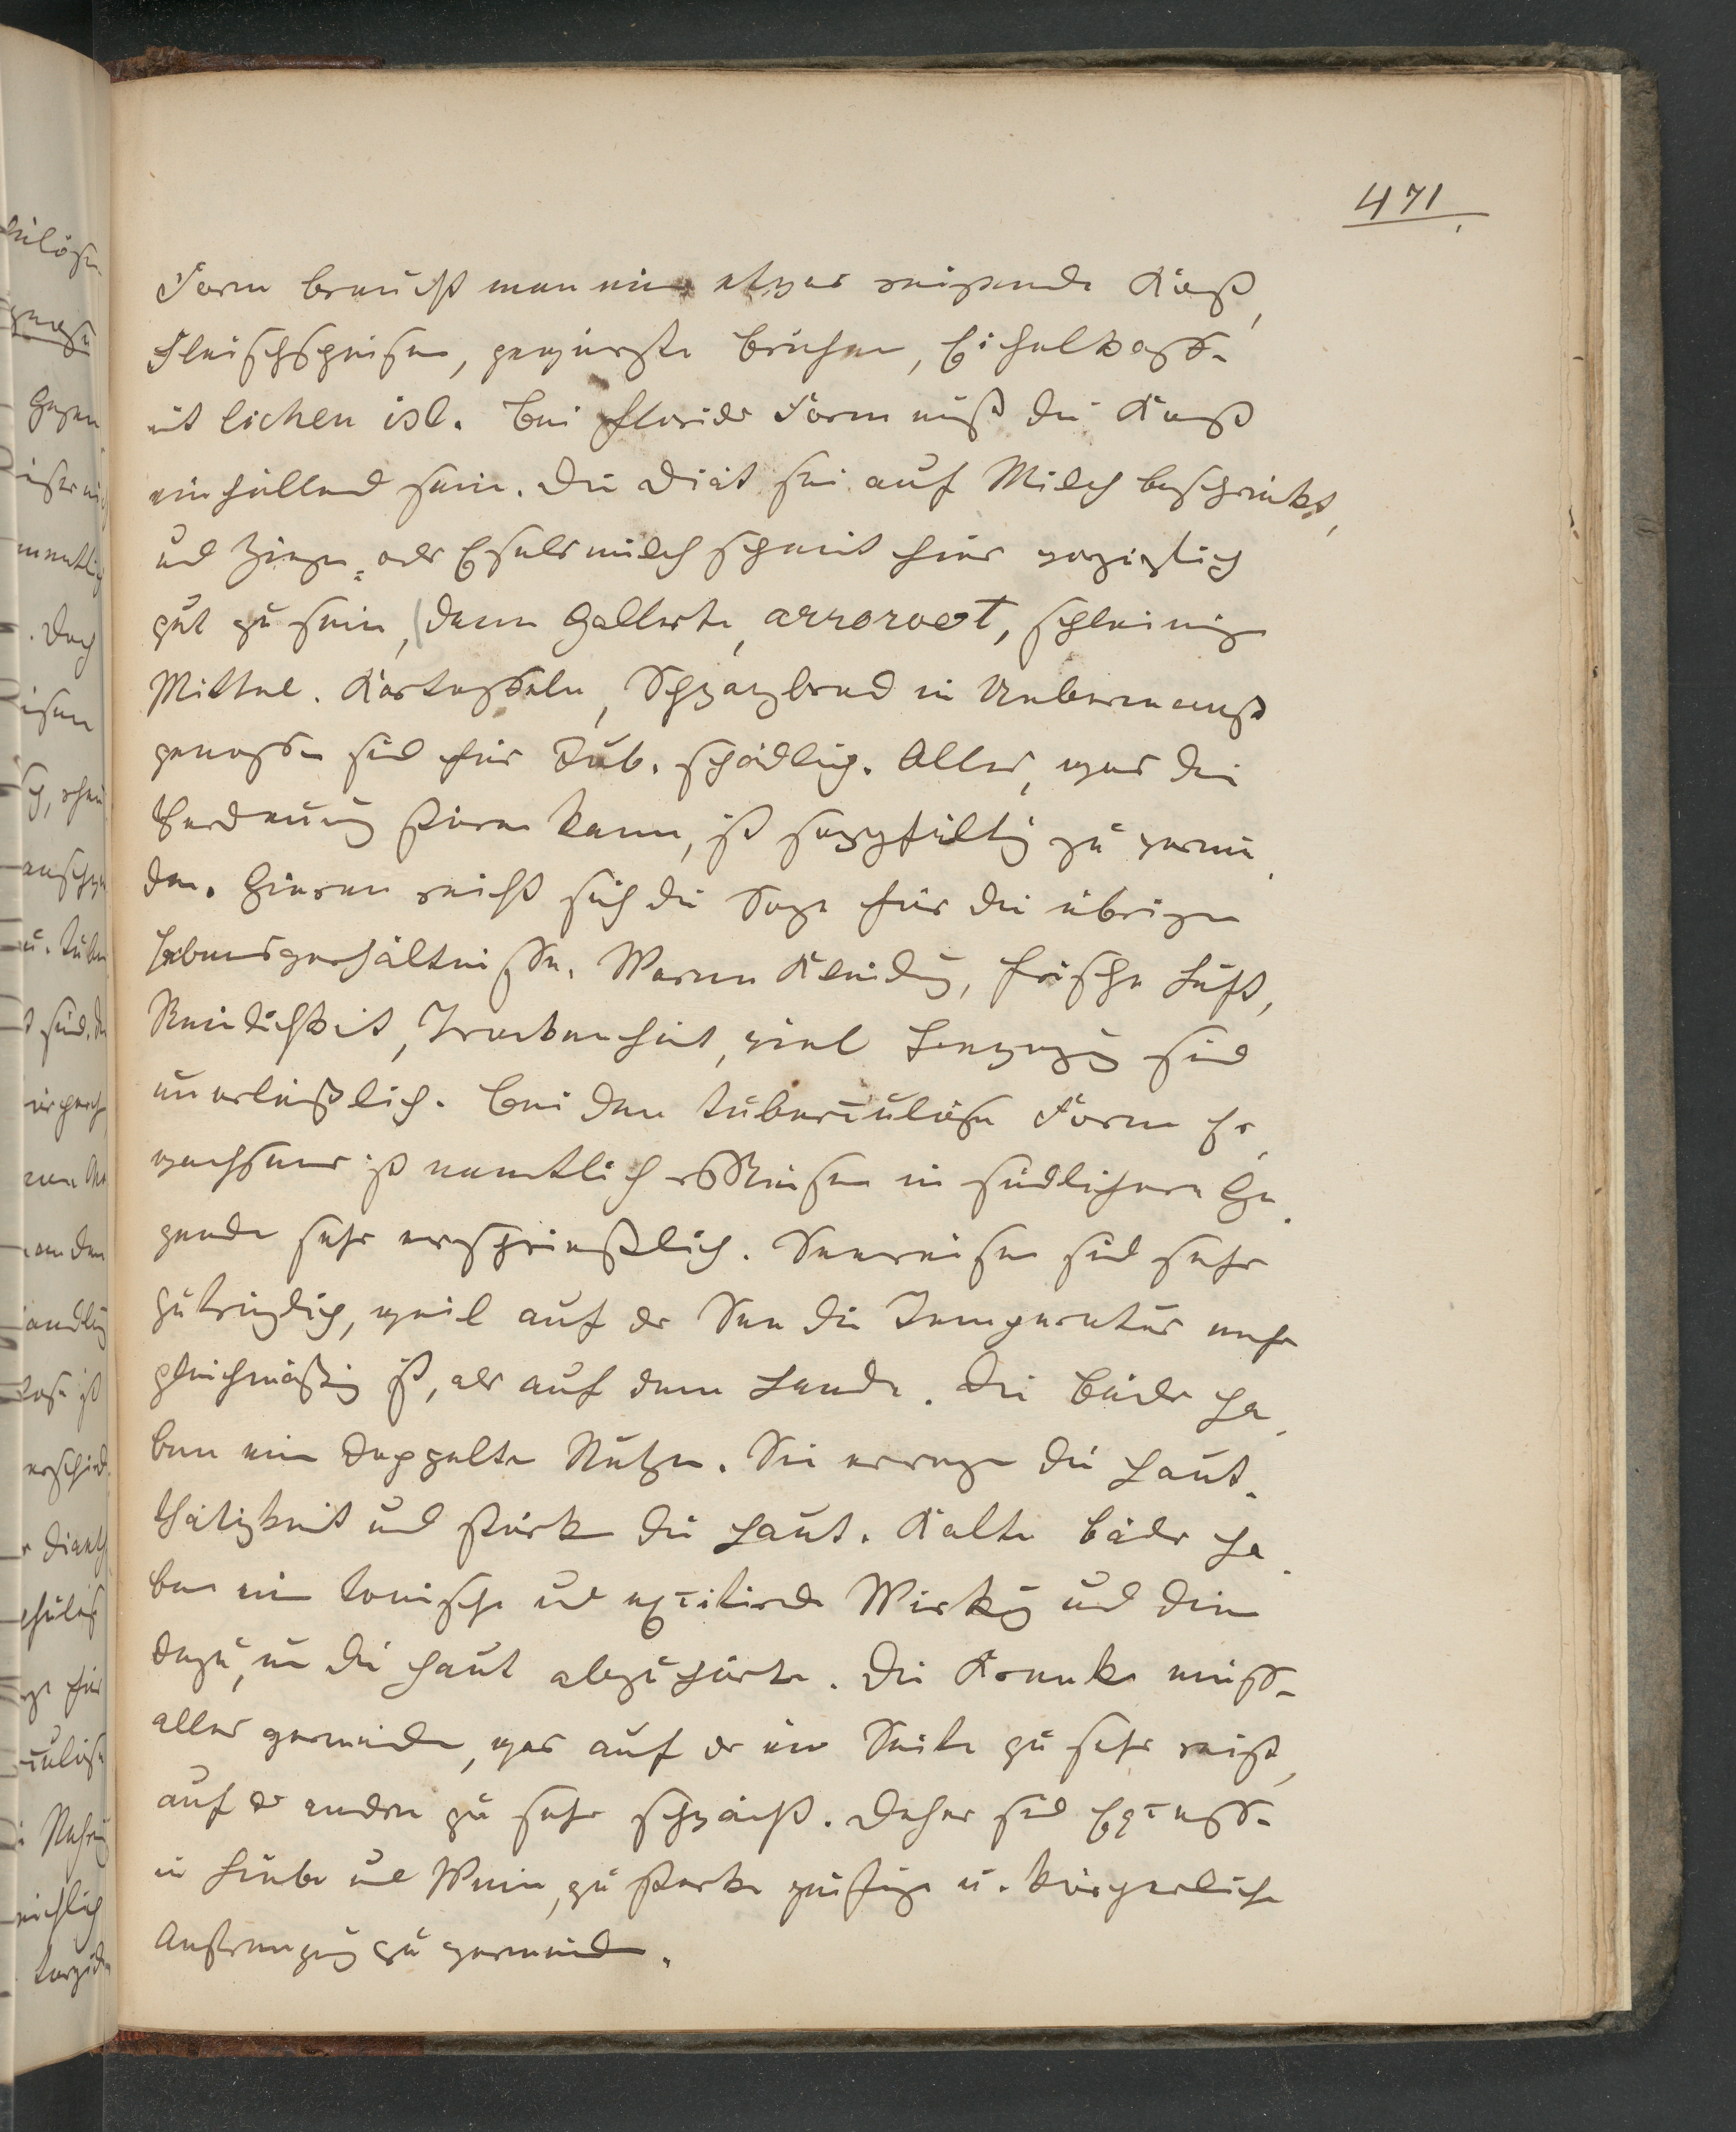 471
Form braucht man eine etwas reizende Kost,
Fleischspeisen, gewürzte Brühen, Eichelkaff.
mit lichen isl. Bei florider Form muß die Kost
einhüllend sein. Die Diät sei auf Milch beschränkt,
und Ziegen- oder Eselsmilch scheint hier vorzüglich
gut zu sein, (dann Gallerte, arroroot, schleimige
Mittel. Kartoffeln, Schwarzbrod in Uebermaß
genossen sind für Tub. schädlich. Alles, was die
Verdauung stören kann, ist sorgfältig zu vermei-
den. Hieran reiht sich die Sorge für die übrigen
Lebensverhältnisse. Warme Kleidung, frische Luft,
Reinlichkeit, Trockenheit, viel Bewegung sind
unerläßlich. Bei den tuberculösen Formen Er-
wachsener ist namentlich Reisen in südlichere Ge-
genden sehr ersprießlich. Seereisen sind sehr
zuträglich, weil auf der See die Temperatur mehr
gleichmäßig ist, als auf dem Lande. Die Bäder ha-
ben einen doppelten Nutzen. Sie erregen die Haut-
thätigkeit und stärken die Haut. Kalte Bäder ha-
ben eine tonische und excitirende Wirkung und dienen
dazu, um die Haut abzuhärten. Die Kranken müssen
alles vermeiden, was auf der einen Seite zu sehr reizt,
auf der anderen zu sehr schwächt. Daher sind Excesse
in Liebe und Wein, zu starke geistige u. körperliche
Anstrengung zu vermeiden.